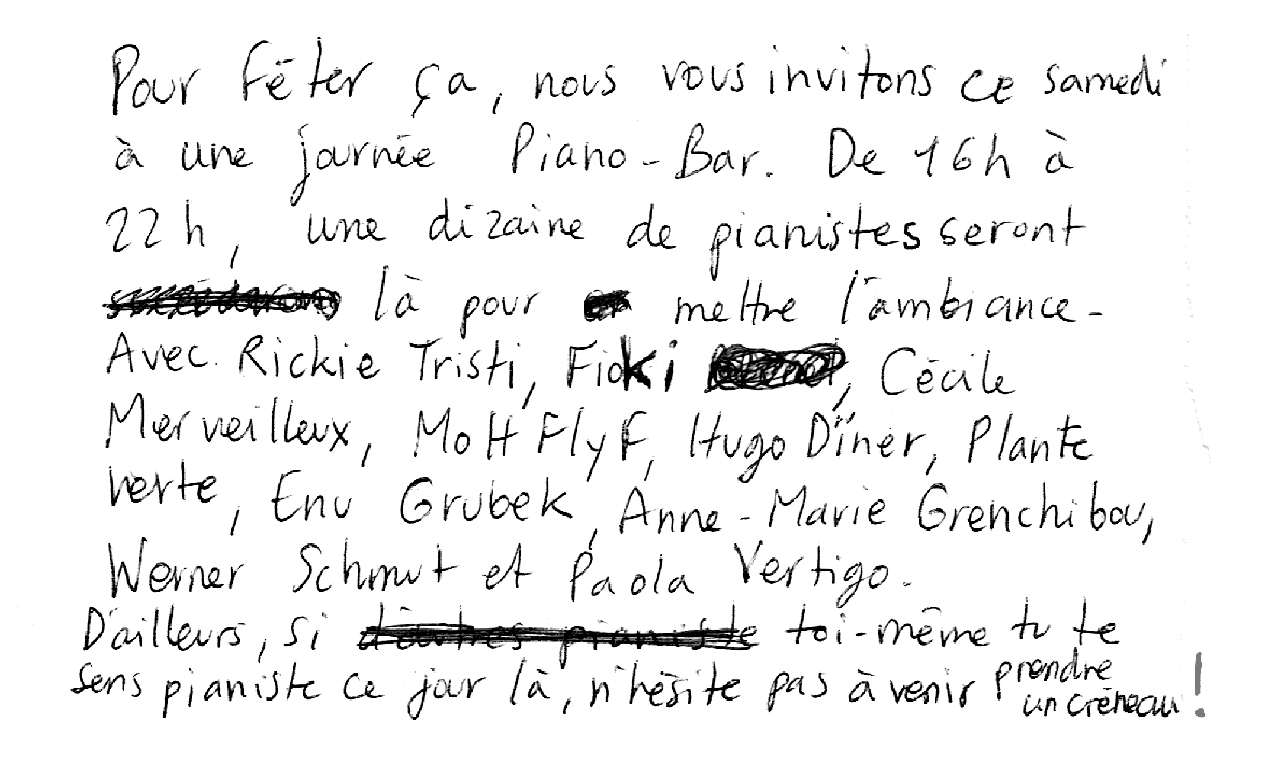 Pour fêter ça, nous vous invitons ce samedi
à une journée Piano-Bar. De 16h à
22h, une dizaine de pianistes seront
là pour mettre l'ambiance.
Avec Rickie Tristi, Fioki, Cécile
Merveilleux, Mott Flyf, Hugo Dîner, Plante
verte, Enu Grubek, Anne-Marie Grenchibou,
Werner Schmut et Paola Vertigo.
D'ailleurs, si toi-même tu te
sens pianiste ce jour là, n'hésite pas à venir prendre
un créneau !